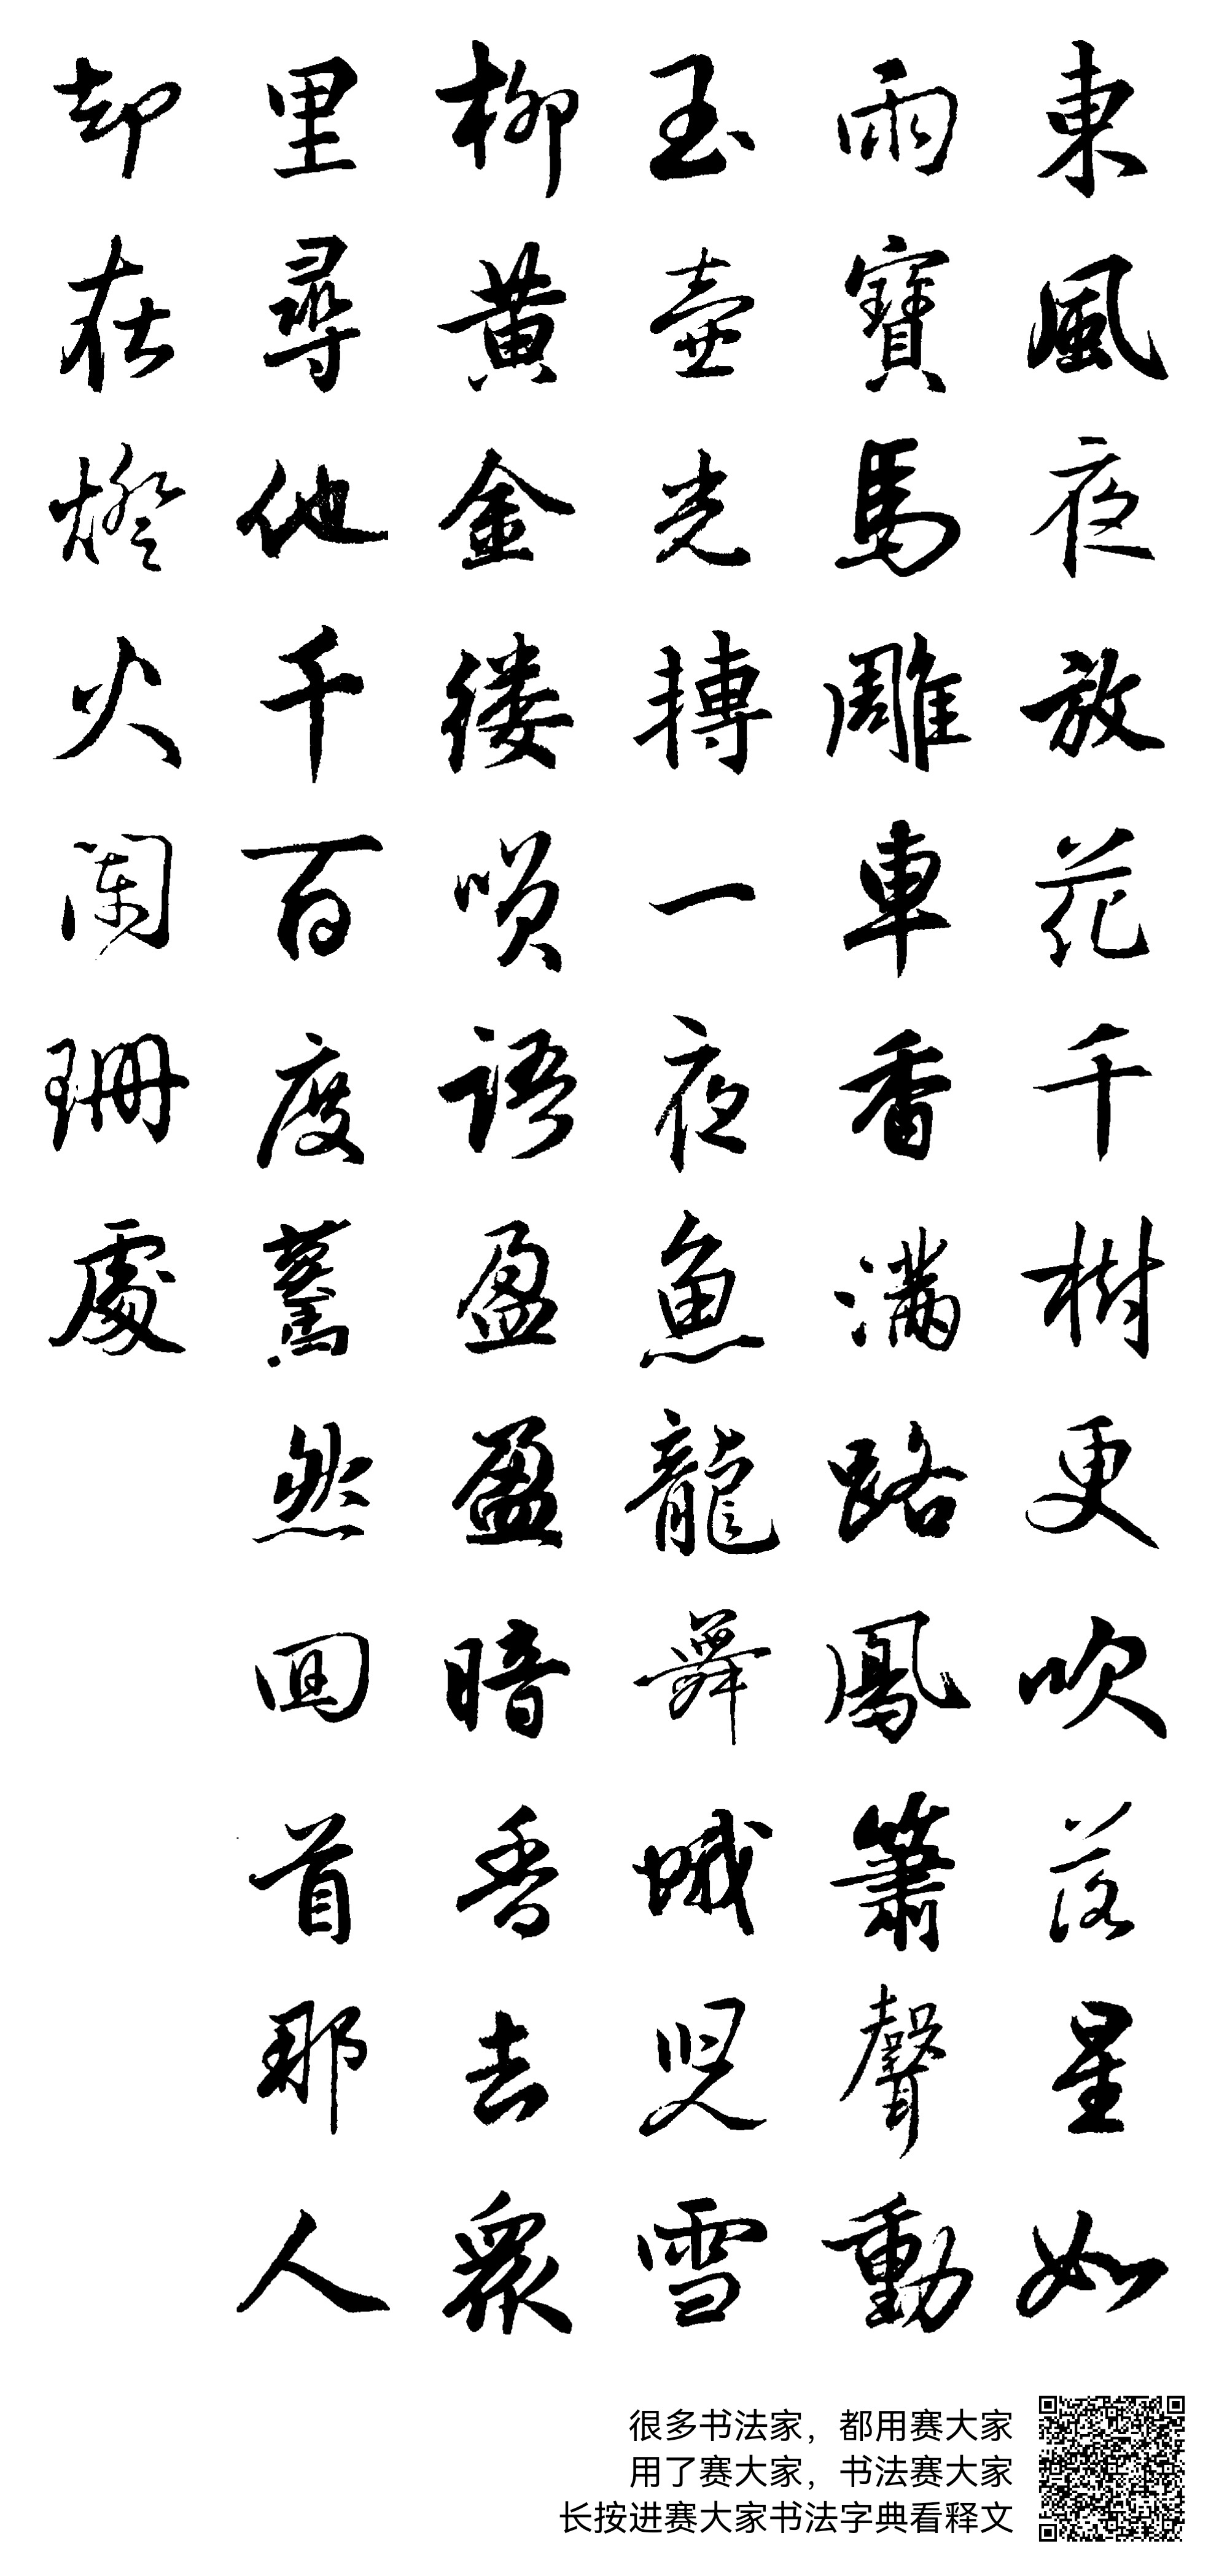 東風夜放花千樹更吹落星如
雨寶馬雕車香满路鳳簫聲動
玉壺光摶一夜魚龍舞蛾児雪
柳黄金缕唄語盈盈暗香去衆
里尋他千百度驀然回首那人
却在燈火阑珊處
很多书法家，都用赛大家
用了赛大家，书法赛大家
长按进赛大家书法字典看释文